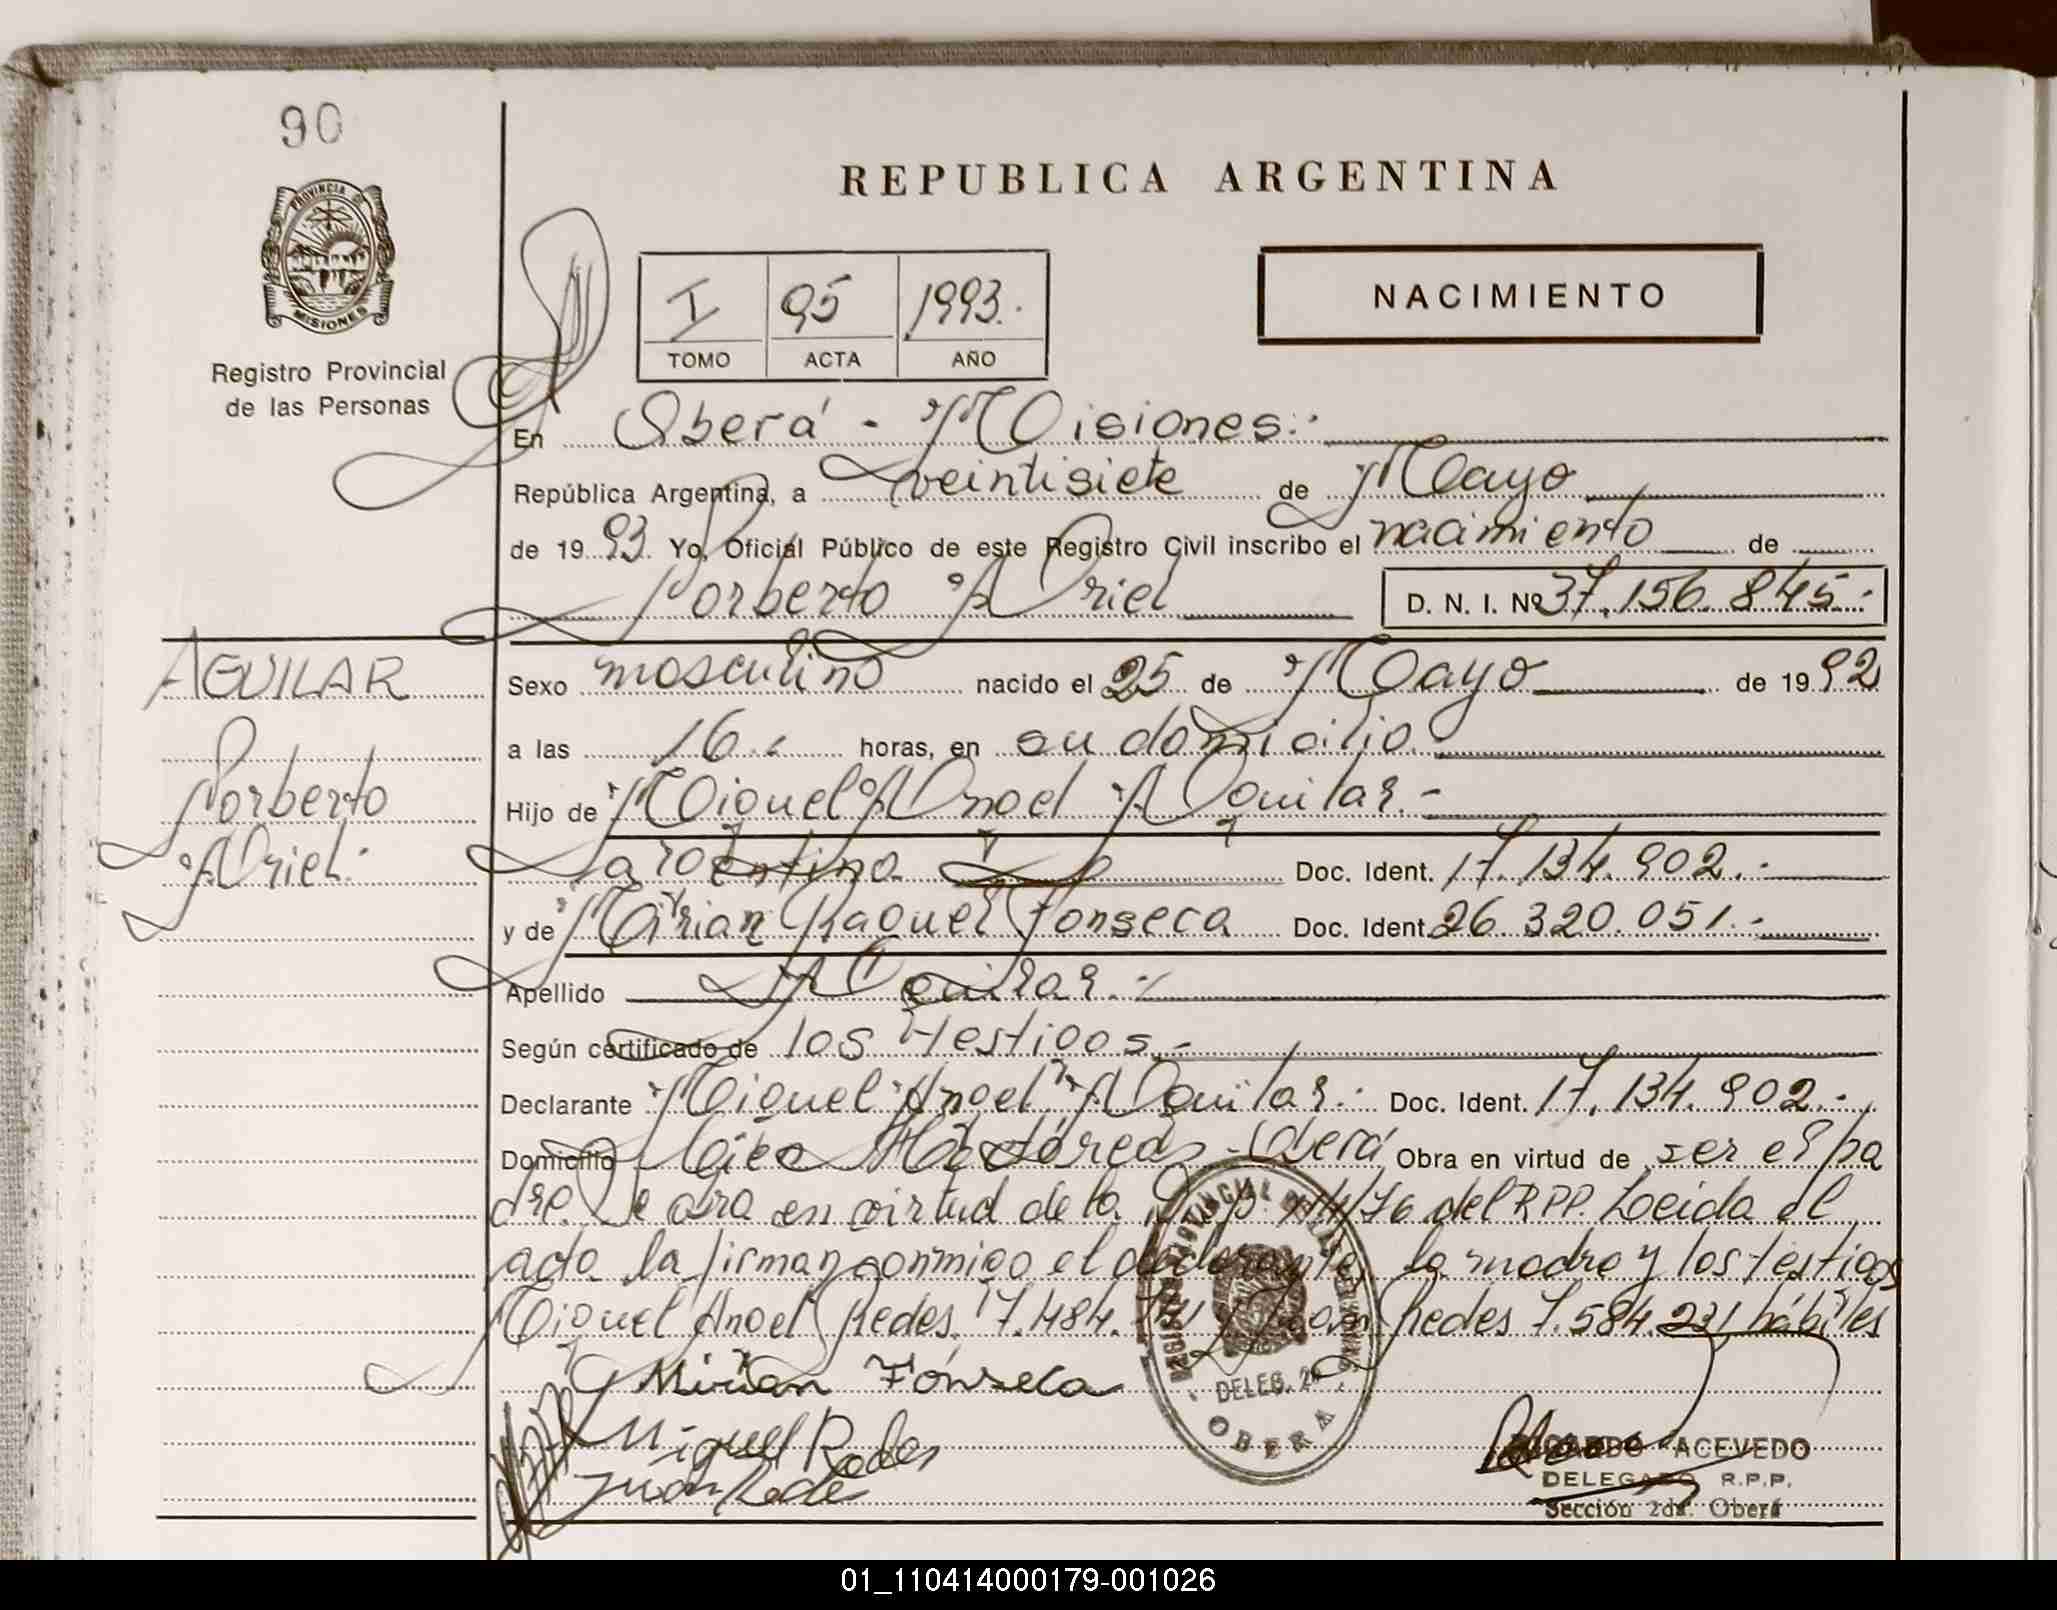 90
REPUBLICA ARGENTINA
PROVINCIA DE
MISIONES
Registro Provincial
de las Personas
I 95 1993.
TOMO ACTA AÑO
NACIMIENTO
En Oberá - Misiones.
República Argentina, a veintisiete de Mayo
de 1993. Yo, Oficial Público de este Registro Civil inscribo el nacimiento de
Norberto Ariel D. N. I. Nº 37.156.845.-
AGUILAR
Norberto
Ariel.
Sexo masculino nacido el 25 de Mayo de 1992
a las 16. horas, en su domicilio.
Hijo de Miguel Angel Aguilar.-
argentino Doc. Ident. 17.134.902.-
y de Mirian Raquel Fonseca Doc. Ident. 26.320.051.-
Apellido Aguilar.-
Según certificado de los testigos.-
Declarante Miguel Angel Aguilar.- Doc. Ident. 17.134.902.-
Domicilio Cien Hectáreas - Oberá Obra en virtud de ser el pa
dre. Se obra en virtud de la Disp. /76 del RPP. Leida el
acta la firman conmigo el declarante, la madre y los testigos
Miguel Angel Redes 17.484. y Juan Redes 7.584.221 hábiles
Mirian Fonseca
Miguel Redes
Juan Rede
REGISTRO PROVINCIAL DE LAS PERSONAS
DELEG. 2ª
OBERA
RICARDO ACEVEDO
DELEGADO R.P.P.
Sección 2da. Oberá
01_110414000179-001026